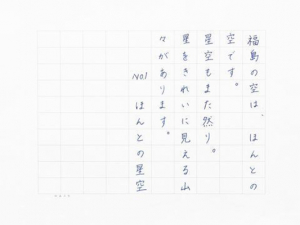 福島の空は、ほんとの
空です。
星空もまた然り。
星をきれいに見える山
々があります。
NO1 ほんとの星空